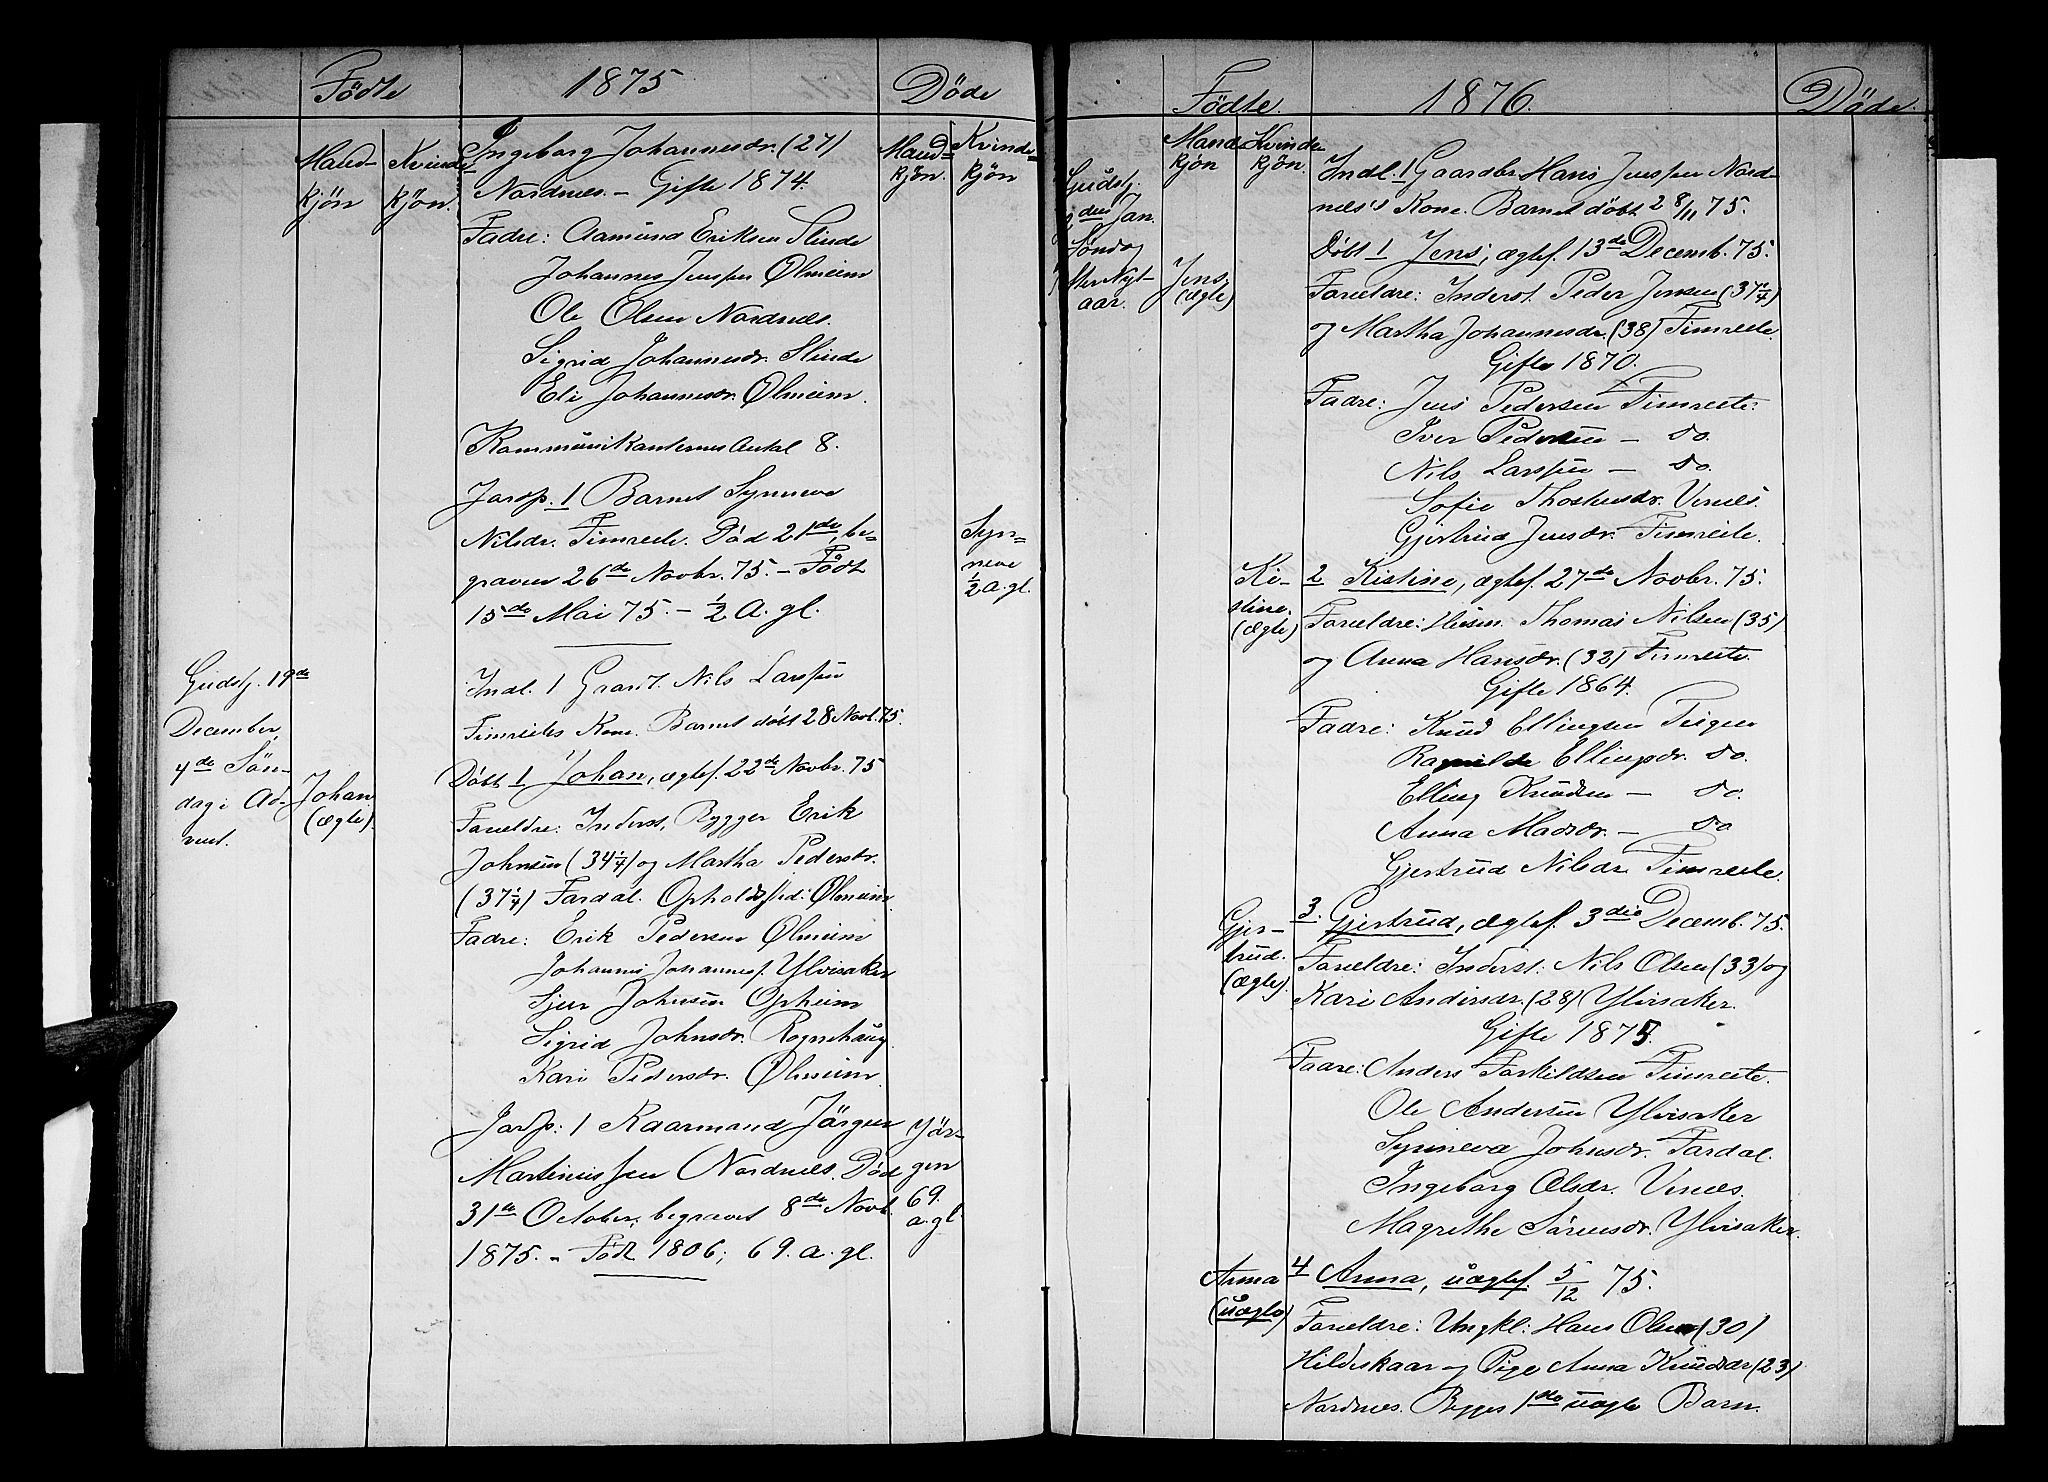 Födte
1875
Döde
Mand-
kjön
Kvinde-
kjön.
Ingeborg Johannesdr. (27)
Nordnes. - Gifte 1874.
Fadre: Aamund Eriksen Slinde
Johannes Jenssen Ølmeim
Ole Olsen Nordnæs.
Sigrid Johannesdr. Slinde
Eli Johannesdr. Ølmeim.
Kommunikanternes Antal 8.
Jordp. 1 Barnet Synneva
Nilsdr. Timreite. Död 21de, be-
graven 26de Novbr. 75. - Född
15de Mai 75. - ½ A. gl.
Mand-
kjön.
Kvinde-
kjön
Syn-
neve
½ a. gl.
Gudstj. 19de
December,
4de Sön-
dag i Ad-
vent.
Johan
(ægte)
Indl. 1 Gaardr. Nils Larssen
Timreites Kone. Barnet döbt 28 Novb. 75.
Döbt 1 Johan, ægtef. 22de Novbr. 75
Foreldre: Inderst, Bygger Erik
Johnsen (34¼) og Martha Pedersdr.
(37¼) Fardal. Opholdssted: Ølmeim
Fadre: Erik Pedersen Ølmeim
Johannes Johannes. Ylvisaker
Sjur Johnsen Opheim
Sigrid Johnsdr. Rognehaug
Kari Pedersdr. Ølmeim.
Jordp: 1 Kaarmand Jörgen
Martinussen Nordnæs. Död
31te October, begravet 8de Novb.
1875. - Född 1806; 69. a. gl.
Jör-
gen
69.
a. gl
Födte.
1876.
Döde.
Mand
kjön
Kvinde
kjön.
Gudstj.
2den Jan.
Söndag
efter Nyt-
aar.
Jens,
(ægte)
Indl. 1 Gaardbr. Hans Jenssen Nord-
næs's Kone. Barnet döbt 28/11 75.
Döbt 1 Jens, ægtef. 13de Decemb. 75.
Foreldre: Inderst. Peder Jensen (37¼)
og Martha Johannesdr. (38) Timreite.
Gifte 1870.
Fadre: Jens Pedersen Timreite.
Iver Pedersen - do.
Nils Larssen - do.
Sofie Thostensdr. Venæs.
Gjertrud Jensdr. Timreite.
Ki-
stine.
(ægte)
2 Kistine, ægtef. 27de Novbr. 75.
Foreldre: Husm. Thomas Nilsen (35)
og Anna Hansdr. (32) Timreite.
Gifte 1864.
Fadre: Knud Ellingsen
Ragnilde Ellingsdr. do.
Elling Knudsen - do.
Anna Madsdr. - do
Gjertrud Nilsdr. Timreite.
Gjer-
trud.
(ægte).
3. Gjertrud, ægtef. 3die Decemb. 75.
Foreldre: Inderst: Nils Olsen (33) og
Kari Andersdr. (28) Ylvisaker.
Gifte 1875.
Fadre: Anders Torkildsen Timreite.
Ole Andersen Ylvisaker
Synneva Johnsdr. Fardal.
Ingeborg Olsdr. Venæs.
Magrethe Sörensdr. Ylvisaker.
Anna
(uægte)
4 Anna, uægtef. 5/12 75.
Foreldre: Ungkl: Hans Olsen (30)
Hildeskaar og Pige Anna Knudsdr (23)
Nordnæs. Begges 1ste uægte Barn.